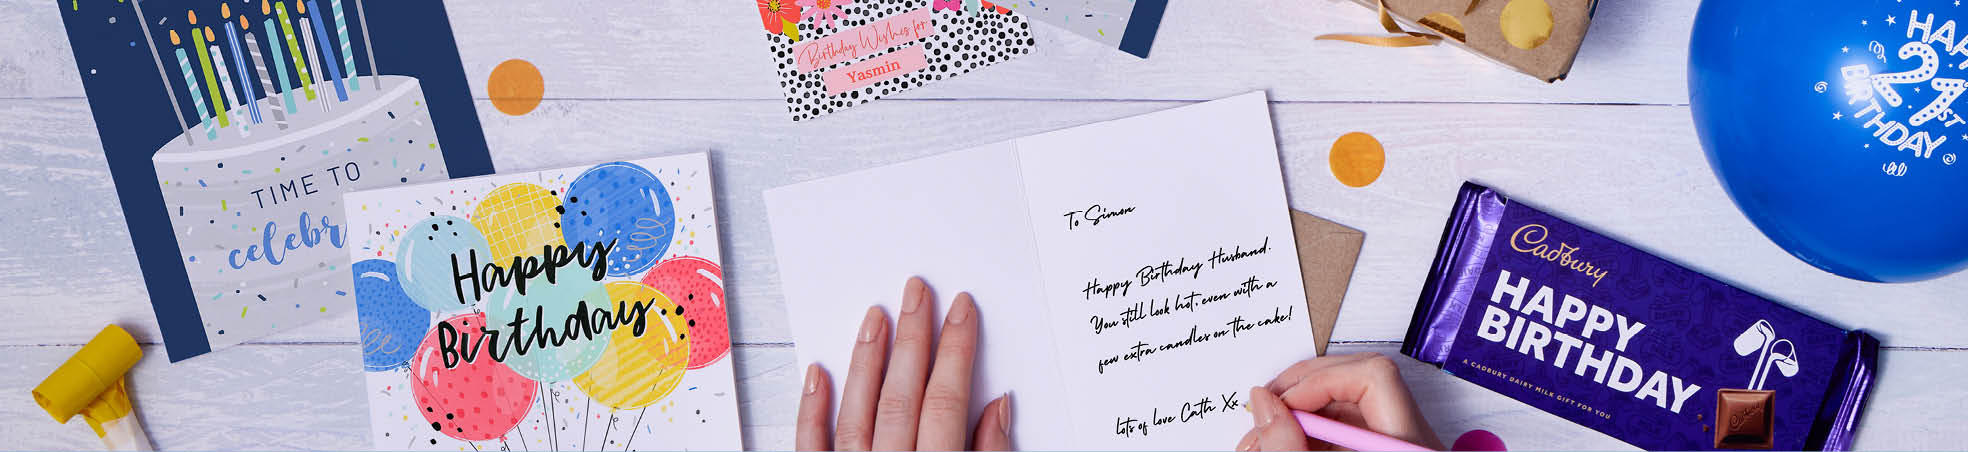 TIME TO
celebr
Happy
Birthday
Birthday Wishes for
Yasmin
To Simon
Happy Birthday Husband.
You still look hot, even with a
few extra candles on the cake!
Lots of love Cath Xx
Cadbury
HAPPY
BIRTHDAY
A CADBURY DAIRY MILK GIFT FOR YOU
Cadbury
HAPP
21ST
BIRTHDAY